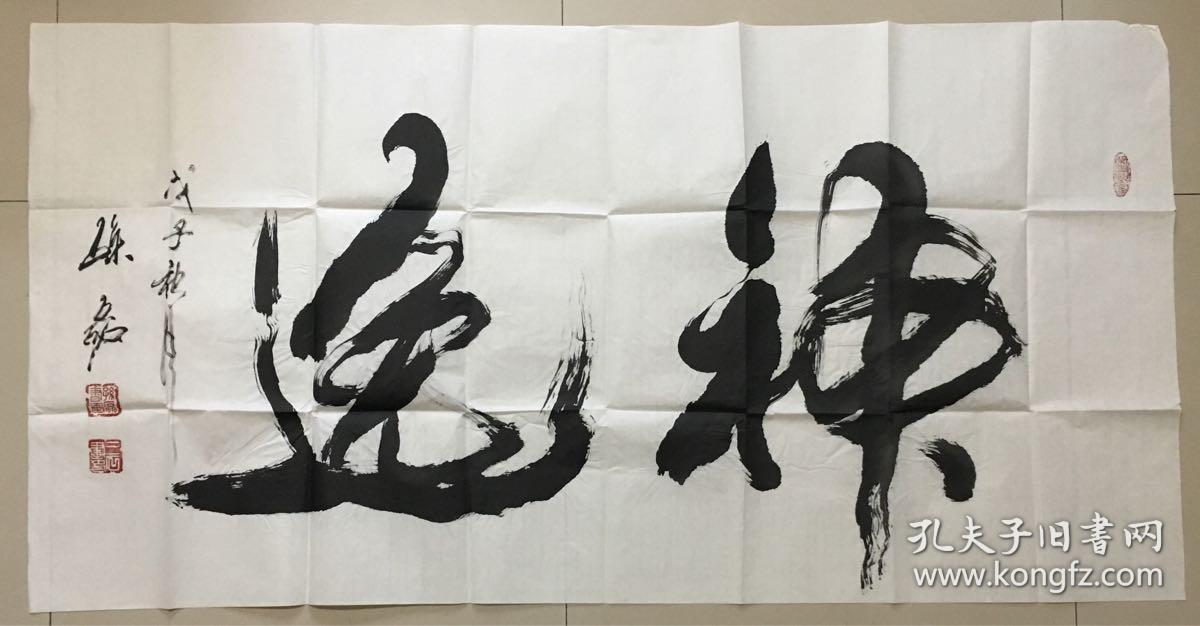 神逸
戊子秋月
孔夫子旧書网
www.kongfz.com